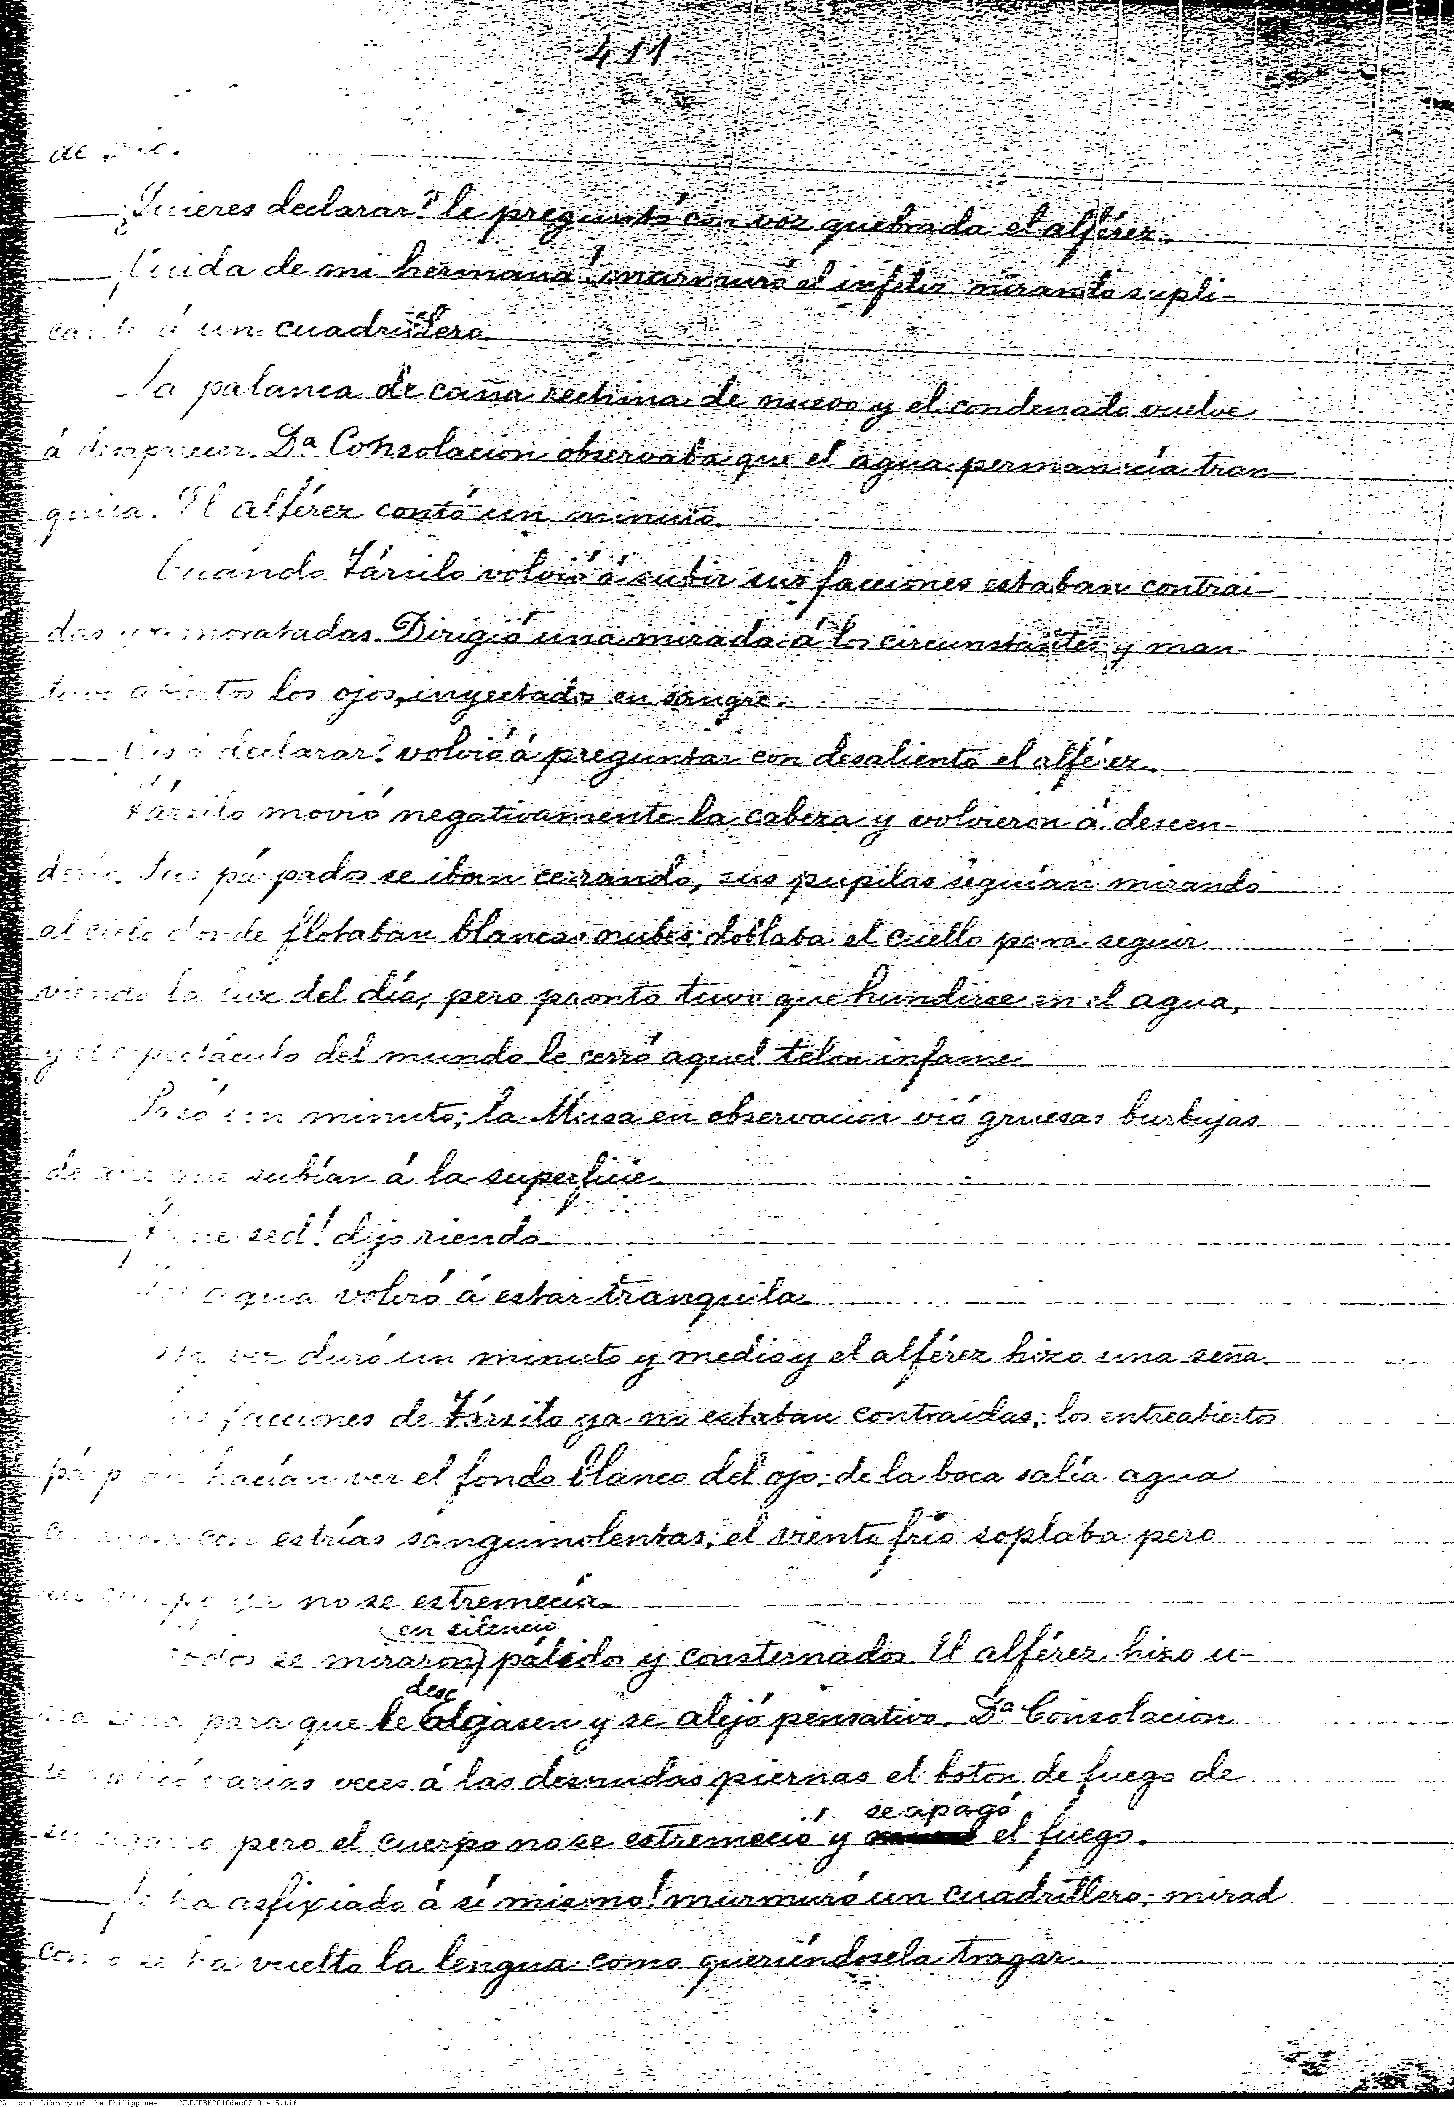 411
de
— ¿Quieres declarar? le preguntó con voz quebrada el alférez.
— ¡Cuida de mi hermana! murmuró el infeliz mirando supli-
cante á un cuadrillero.
La palanca de caña rechina de nuevo y el condenado vuelve
á desaparecer. Dª Consolacion observaba que el agua permanecía tran
quila. El alférez contó un minuto.
Cuando Társilo volvió á subir sus facciones estaban contrai-
das y amoratadas. Dirigió una mirada á los circunstantes y man
tuvo abiertos los ojos, inyectados en sangre.
— Vas á declarar? volvió á preguntar con desaliento el alférez.
Társilo movió negativamente la cabeza y volvieron á descen-
derle. Sus párpados se iban cerrando, sus pupilas seguían mirando
al cielo donde flotaban blancas nubes; doblaba el cuello para seguir
viendo la luz del día, pero pronto tuvo que hundirse en el agua,
y el espectáculo del mundo le cerró aquel telon infame.
Pasó un minuto; la Musa en observacion vió gruesas burbujas
de aire que subían á la superficie.
— ¡Tiene sed! dijo riendo
El agua volvió á estar tranquila.
Esta vez duró un minuto y medio y el alférez hizo una seña.
Las facciones de Társilo ya no estaban contraidas; los entreabiertos
hacían ver el fondo blanco del ojo; de la boca salía agua
con estrías sanguinolentas; el viento frío soplaba pero
su cuerpo ya no se estremecía.
en silencio
Todos se miraron pálido y consternados. El alférez hizo u-
desc
na seña para que le colgasen y se alejó pensativo. Dª Consolacion
le aplicó varias veces á las desnudas piernas el boton de fuego de
se apagó
su cigarro pero el cuerpo no se estremeció y el fuego.
— ¡Se ha asfixiado á sí mismo! murmuró un cuadrillero; mirad
como se ha vuelto la lengua como queriéndosela tragar.